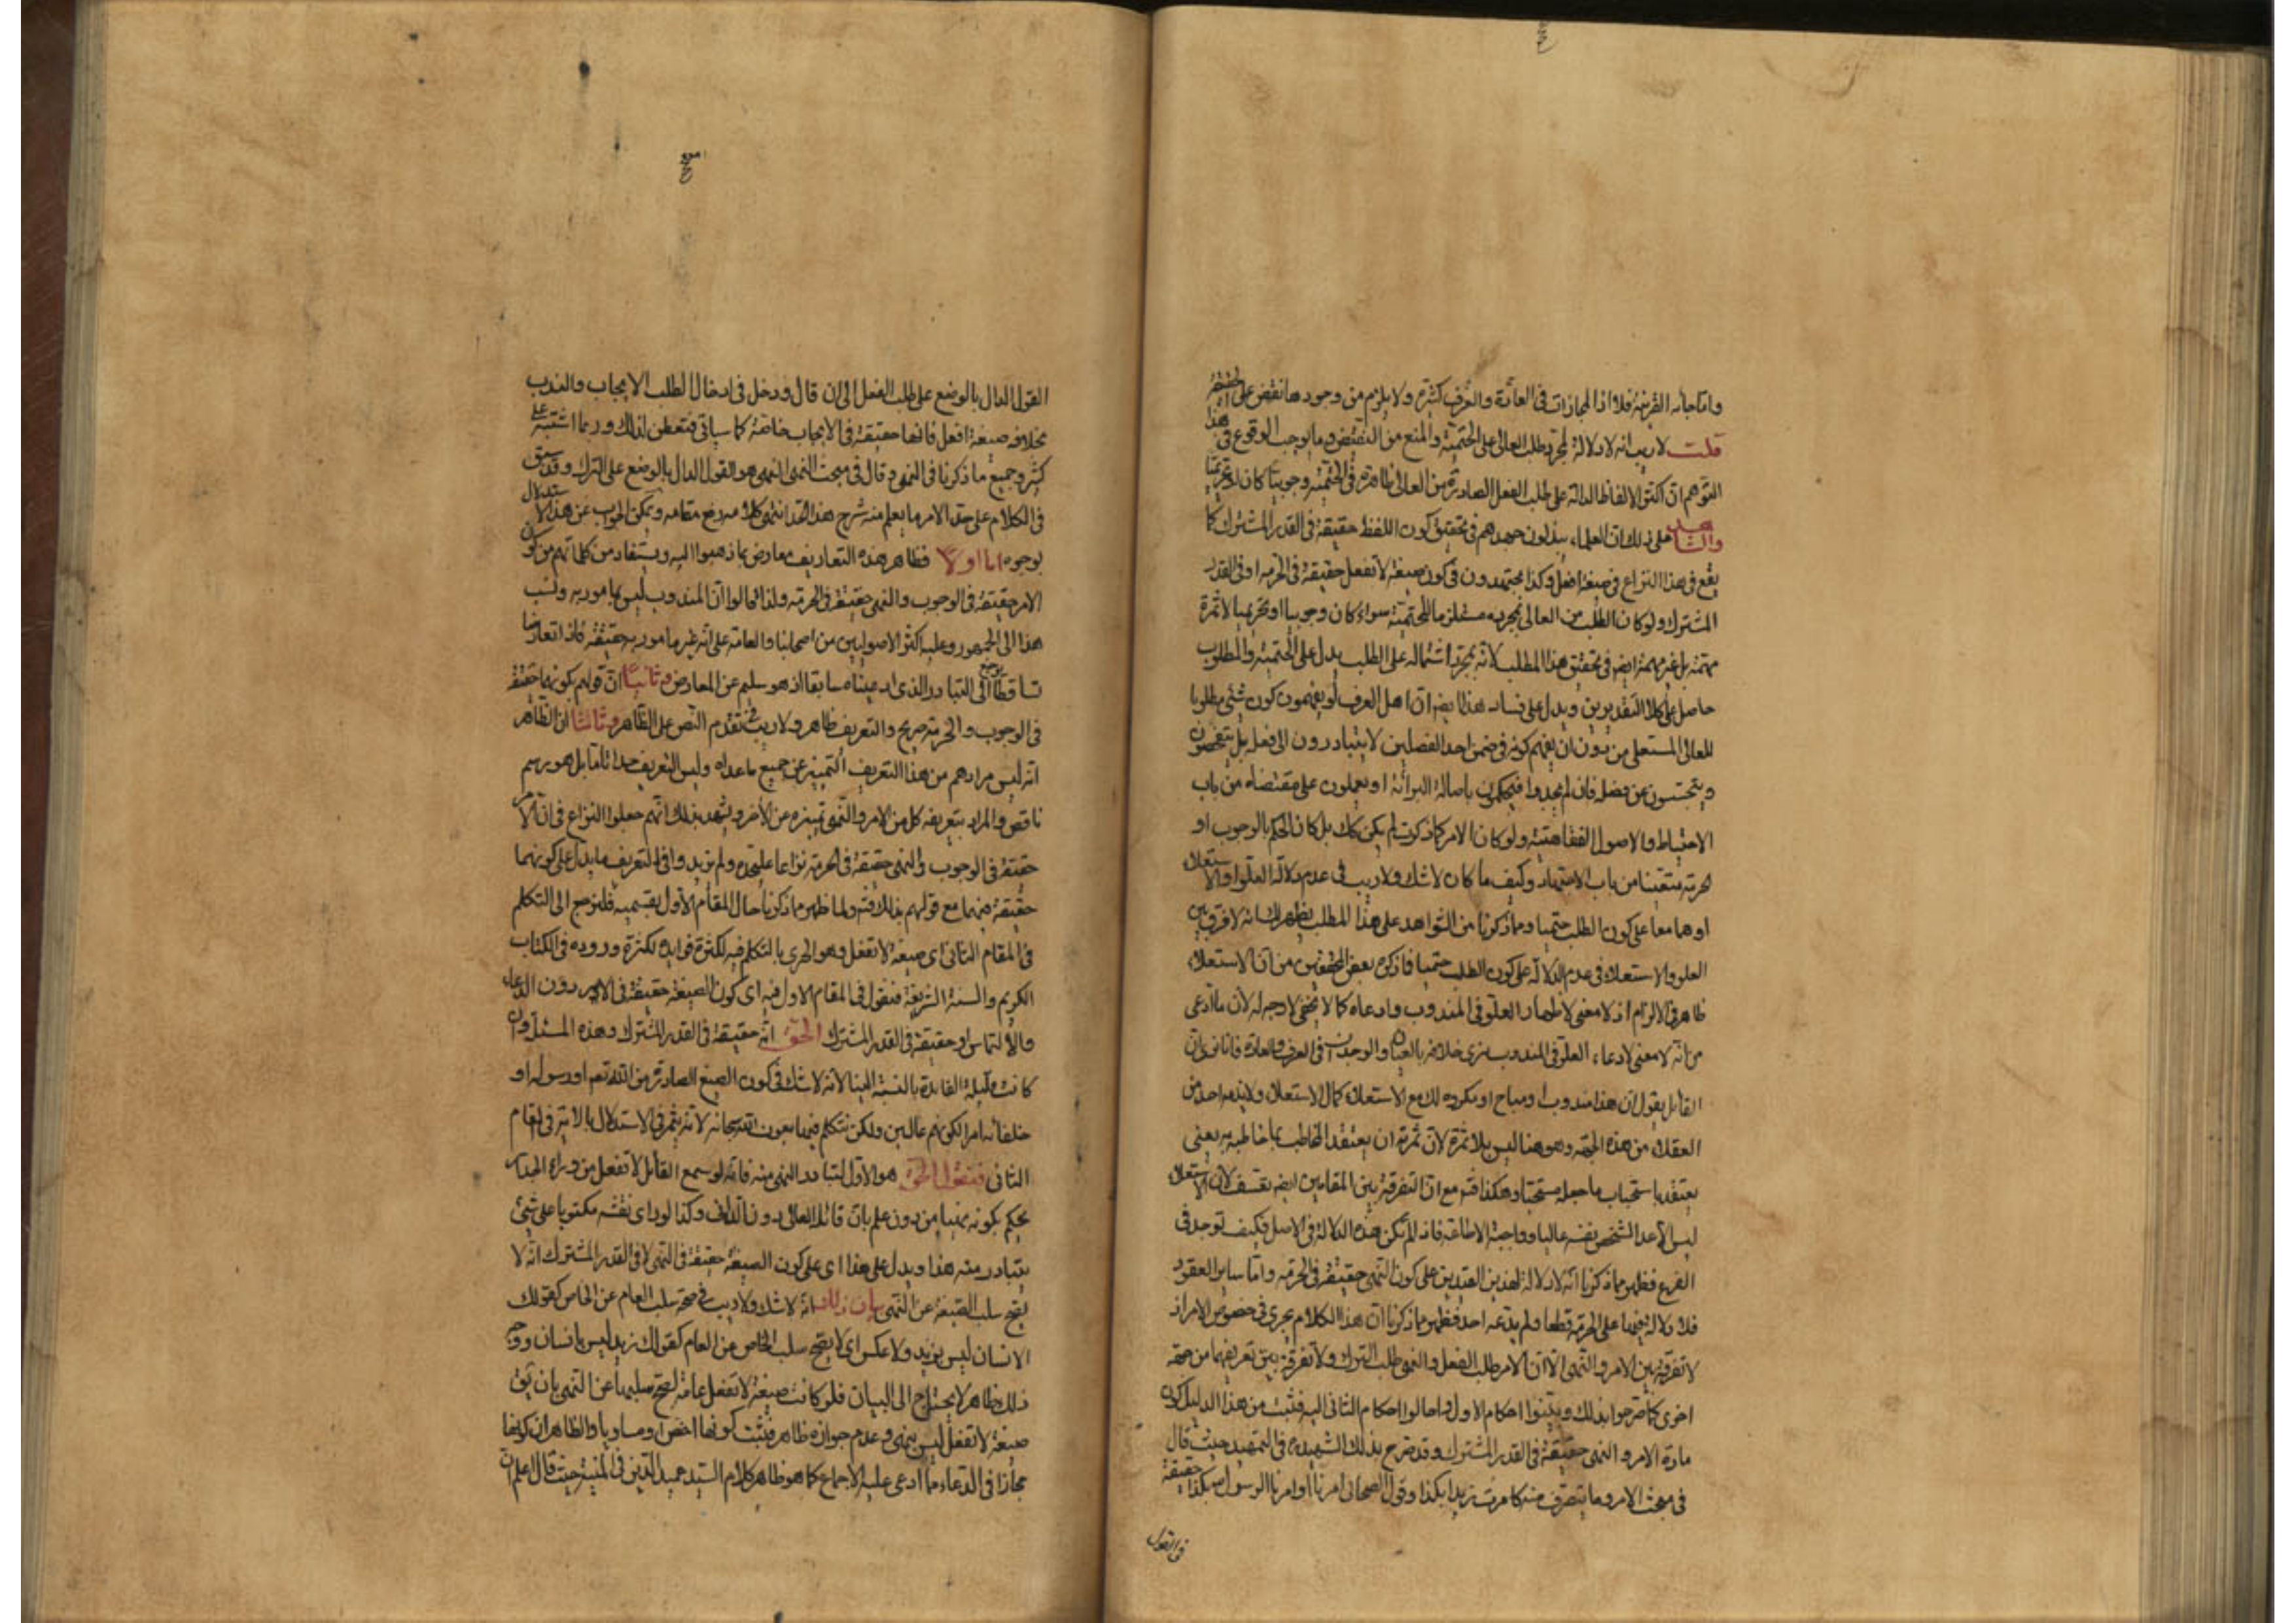 واما جائه القرينة فلا اذ المجازات فى العامّة والعُرف كثيرة ولا يلزم من وجودها نقض على
قلت لا ريب انه لا دلالة لمجرّد طلب العالى على الحتميّة والمنع من النقيض وما يوجب الوقوع فى هذا
التوّهم انّ اكثر الالفاظ الدالة على طلب الفعل الصادرة من العالى ظاهرة فى الحتميّة وجوبيّا كان او تحريميّا
والشاهد على ذلك ان العلماء يبذلون جهدهم فى تحقيق كون اللفظ حقيقة فى القدر المشترك كما
يقع فى هذا النزاع فى صيغة افعل وكذا يجتهدون فى كون صيغة لا تفعل حقيقة فى الحرمة او فى القدر
المشترك ولو كان الطلب من العالى بمجرده مستلزما للحتميّة سواء كان وجوبيا او تحريميا لا ثمرة
مهمّة بل غير مهمّة ايضا فى تحقيق هذا المطلب لانّه بمجرّد اشتماله على الطلب يدل على الحتمية والمطلوب
حاصل على كلا التقديرين ويدل على فساد هذا ايضا انّ اهل العرف لو يفهمون كون شئ مطلوبا
للعالى المستعلى من دون ان يفهم كونه فى ضمن احد الفصلين لا يتبادرون الى فعله بل يتفحّصون
ويتجسّسون عن فصله فان لم يجدوا فيحكمون باصالة البرائة او يعملون على مقتضاه من باب
الاحتياط والاصول الفقاهتية ولو كان الامر كما ذكرت لم يكن كك بل كان الحكم بالوجوب او
الحرمة متيقّنا من باب الاجتهاد وكيف ما كان لا شك ولا ريب فى عدم دلالة العلّو او الاستعلاء
او هما معا على كون الطلب حتميا ومما ذكرنا من الشواهد على هذا المطلب يظهر لك انه لا فرق بين
العلو والاستعلاء فى عدم الدلالة على كون الطلب حتميا فما ذكره بعض المحققين من انّ الاستعلاء
ظاهر فى الالزام اذ لا معنى لاظهار العلّو فى المندوب وادعاه كما لا يخفى لا وجه له لانّ ما ادّعى
من انّه لا معنى لادعاء العلّو فى المندوب نرى خلافه بالعيان والوجدان فى العرف والعادة فانا نرى انّ
القائل يقول انّ هذا مندوب او مباح او مكروه لك مع الاستعلاء كمال الاستعلاء ولا يذمه احد من
العقلاء من هذه الجهة وهو هنا ليس بلا ثمرة لانّ ثمرته ان يعتقد المخاطب بما خاطبه به يعنى
يعتقد باستحباب ما جعله مستحبّا وهكذا فتم مع انّ التفرقة بين المقامين ايضا تعسّف لانّ الاستعلاء
ليس الّا عدّ الشخص نفسه عاليا وواجبة الاطاعة فاذا لم يكن هذه الدلالة فى الاصل فكيف توجد فى
الفرع فظهر مما ذكرنا انّه لا دلالة لهذين القيدين على كون النهى حقيقة فى الحرمة وامّا ساير القيود
فلا دلالة فيها على الحرمة قطعا ولم يدّعه احد فظهر مما ذكرنا ان هذا الكلام يجرى فى خصوص الامر اذ
لا تفرقة بين الامر والنهى الّا انّ الامر طلب الفعل والنهى طلب الترك ولا تفرقة بين تعريفهما من جهة
اخرى كما صرّحوا بذلك وبيّنوا احكام الاول واحالوا احكام الثانى اليه فثبت من هذا الدليل كون
مادة الامر والنهى حقيقة فى القدر المشترك وقد صرّح بذلك الشهيد ره فى التمهيد حيث قال
فى مبحث الامر وما يتصرّف منه كامرت زيدا بكذا وقول الصحابى امرنا او امرنا الرسول ص بكذا حقيقة
فى القول
القول الدال بالوضع على طلب الفعل الى ان قال ودخل فى ادخال الطلب الايجاب والندب
بخلاف صيغة افعل فانها حقيقة فى الايجاب خاصّة كما سياتى فتفطن لذلك وربما اشتبه على
كثير وجميع ما ذكرنا فى النهى وقال فى مبحث النهى النهى هو القول الدال بالوضع على الترك وقد سبق
فى الكلام على حدّ الامر ما يعلم منه شرح هذا الحدّ انتهى كلامه رفع مقامه ويمكن الجواب عن هذا الاستدلال
بوجوه اما اولا فظاهر هذه التعاريف معارض بما ذهبوا اليه ويستفاد من كلماتهم من كون
الامر حقيقة فى الوجوب والنهى حقيقة فى الحرمة ولذا قالوا انّ المندوب ليس بمامور به ونسب
هذا الى الجمهور وعليه اكثر الاصوليين من اصحابنا والعامة على انّه غير مامور به حقيقة فاذا تعارضا
تساقطا فيرجع الى التبادر الذى ادعيناه سابقا اذ هو سليم عن المعارض وثانيا انّ قولهم بكونهما حقيقة
فى الوجوب والحرمة صريح والتعريف ظاهر ولا ريب فى تقدم النّص على الظّاهر وثالثا ان الظّاهر
انه ليس مرادهم من هذا التعريف التميز عن جميع ما عداه وليس التعريف حدا تامّا بل هو رسم
ناقص والمراد بتعريف كل من الامر والنّهى تميزه عن الآخر ويشهد بذلك انّهم جعلوا النزاع فى انّ الامر
حقيقة فى الوجوب والنهى حقيقة فى الحرمة نزاعا عليحده ولم يزيدوا فى التعريف ما يدل على كونهما
حقيقة فيهما مع قولهم بذلك فتم ولما ظهر مما ذكرنا حال المقام الاول بقسميه فلنرجع الى التكلم
فى المقام الثانى اى صيغة لا تفعل وهو الحرى بالتكلم فيه لكثرة فوايده لكثرة وروده فى الكتاب
الكريم والسنة الشريفة فنقول فى المقام الاول فيه اى كون الصيغة حقيقة فى الامر دون الدعاء
والالتماس او حقيقة فى القدر المشترك الحقّ انّه حقيقة فى القدر المشترك وهذه المسئلة وان
كانت قليلة الفايدة بالنسبة الينا لانه لا شك فى كون الصيغ الصادرة من اللّه تعم او رسوله او
خلفائه امرا لكونهم عالين ولكن نتكلم فيها بعون اللّه سبحانه لانه يثمر فى الاستدلال بالآية فى المقام
الثانى فنقول الحقّ هو الاوّل لتبادر النهى منه فانّه لو سمع القائل لا تفعل من وراء الجدار
يحكم بكونه نهيا من دون علم بانّ قائله العالى دون الدّانى وكذا لو راى نقشه مكتوبا على شئ
يتبادر منه هذا ويدل على هذا اى على كون الصيغة حقيقة فى النّهى لا فى القدر المشترك انّه لا
يصح سلب الصّيغة عن النّهى بيان ذلك انّه لا شك ولا ريب فى صحة سلب العام عن الخاص كقولك
الانسان ليس بزيد ولا عكس اى لا يصح سلب الخاص عن العام كقولك زيد ليس بانسان ووجه
ذلك ظاهر لا يحتاج الى البيان فلو كانت صيغة لا تفعل عامة لصحّ سلبها عن النّهى بان يقق
صيغة لا تفعل ليس بنهى وعدم جوازه ظاهر فثبت كونها اخصّ او مساويا والظاهر ان كونها
مجازا فى الدّعاء ممّا ادعى عليه الاجماع كما هو ظاهر كلام السّيد عميد الدّين فى المنية حيث قال اعلم ان